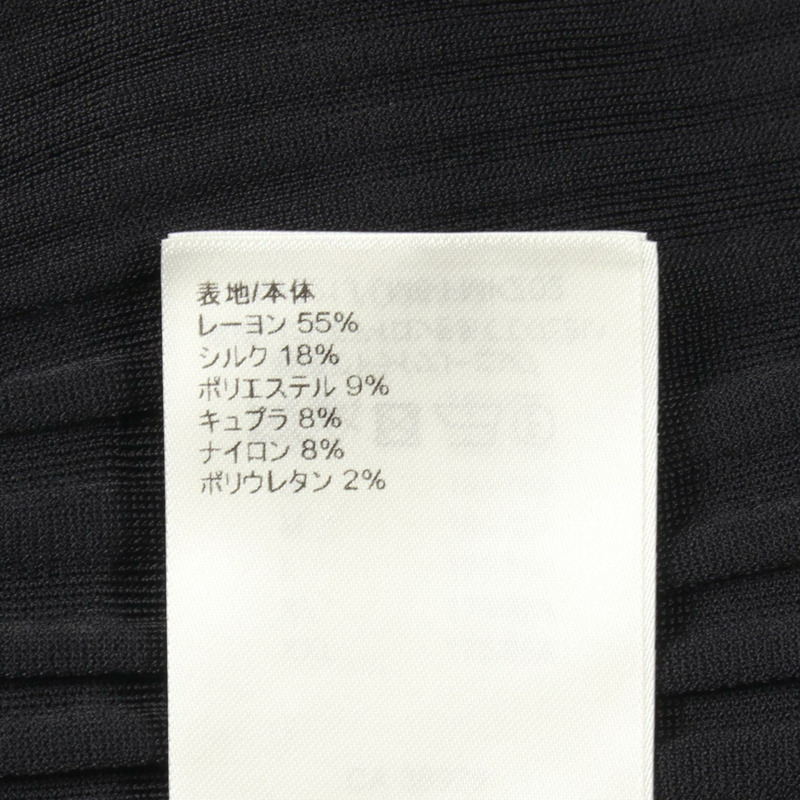 表地/本体
レーヨン 55%
シルク 18%
ポリエステル 9%
キュプラ 8%
ナイロン 8%
ポリウレタン 2%